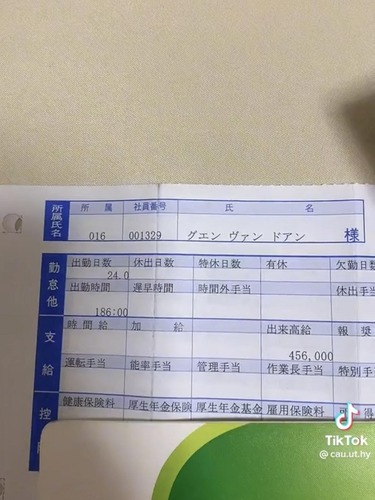 所属氏名
所 属 社員番号 氏 名
016 001329 グエン ヴァン ドアン 様
勤怠他
出勤日数 休出日数 特休日数 有休 欠勤日
24.0
出勤時間 遅早時間 時間外手当 休出手
186:00
支給
時間給 加 給 出来高給 報奨
456,000
運転手当 能率手当 管理手当 作業長手当 特別手
控
健康保険料 厚生年金保険 厚生年金基金 雇用保険料 得
TikTok
@ cau.ut.hy